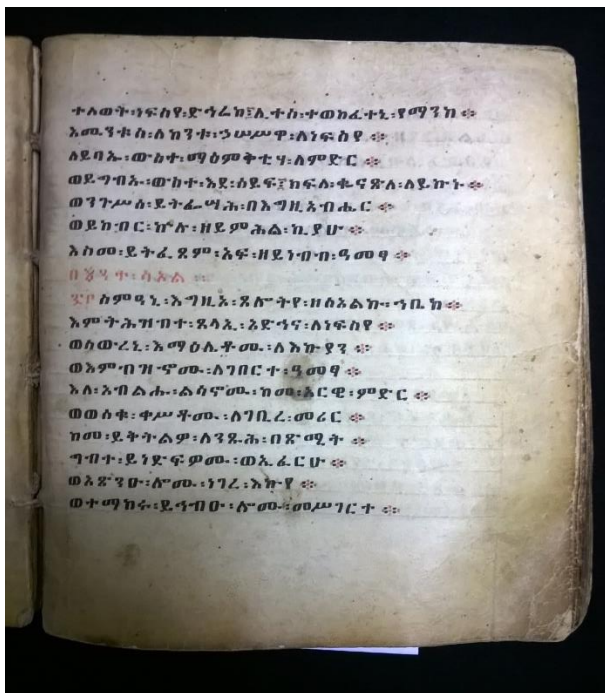 ተለወት፡ነፍስየ፡ድኅሬከ፤ሊተሰ፡ተወክፈተኒ፡የማንከ፨
እሙንቱሰ፡ለከንቱ፡ኃሠሥዋ፡ለነፍስየ፨
ለይባኡ፡ውስተ፡ማዕምቅቲሃ፡ለምድር፨
ወይግብኡ፡ውስተ፡እደ፡ሰይፍ፤ክፍለ፡ቈናጽለ፡ለይኩኑ፨
ወንጉሥሰ፡ይትፌሣሕ፡በእግዚአብሔር፨
ወይከብር፡ኵሉ፡ዘይምሕል፡ኪያሁ፨
እስመ፡ይትፈጸም፡አፍ፡ዘይነብብ፡ዓመፃ፨
ስምዓኒ፡እግዚአ፡ጸሎትየ፡ዘሰአልኩ፡ኀቤከ፨
እምትሕዝብተ፡ጸላኢ፡አድኅና፡ለነፍስየ፨
ወሰውረኒ፡እማዕሌቶሙ፡ለእኩያን፨
ወእምብዝኖሙ፡ለገበርተ፡ዓመፃ፨
እለ፡አብልሑ፡ልሳኖሙ፡ከመ፡አርዌ፡ምድር፨
ወወሰቁ፡ቀሥቶሙ፡ለገቢረ፡መሪር፨
ከመ፡ይትትልዎ፡ለንጹሕ፡በጽሚት፨
ግብተ፡ይነድፍዎሙ፡ወኢፈርሁ፨
ወአጽንዑ፡ሎሙ፡ነገረ፡እኩየ፨
ወተማከሩ፡ይኅብዑ፡ሎሙ፡መሥገርተ፨